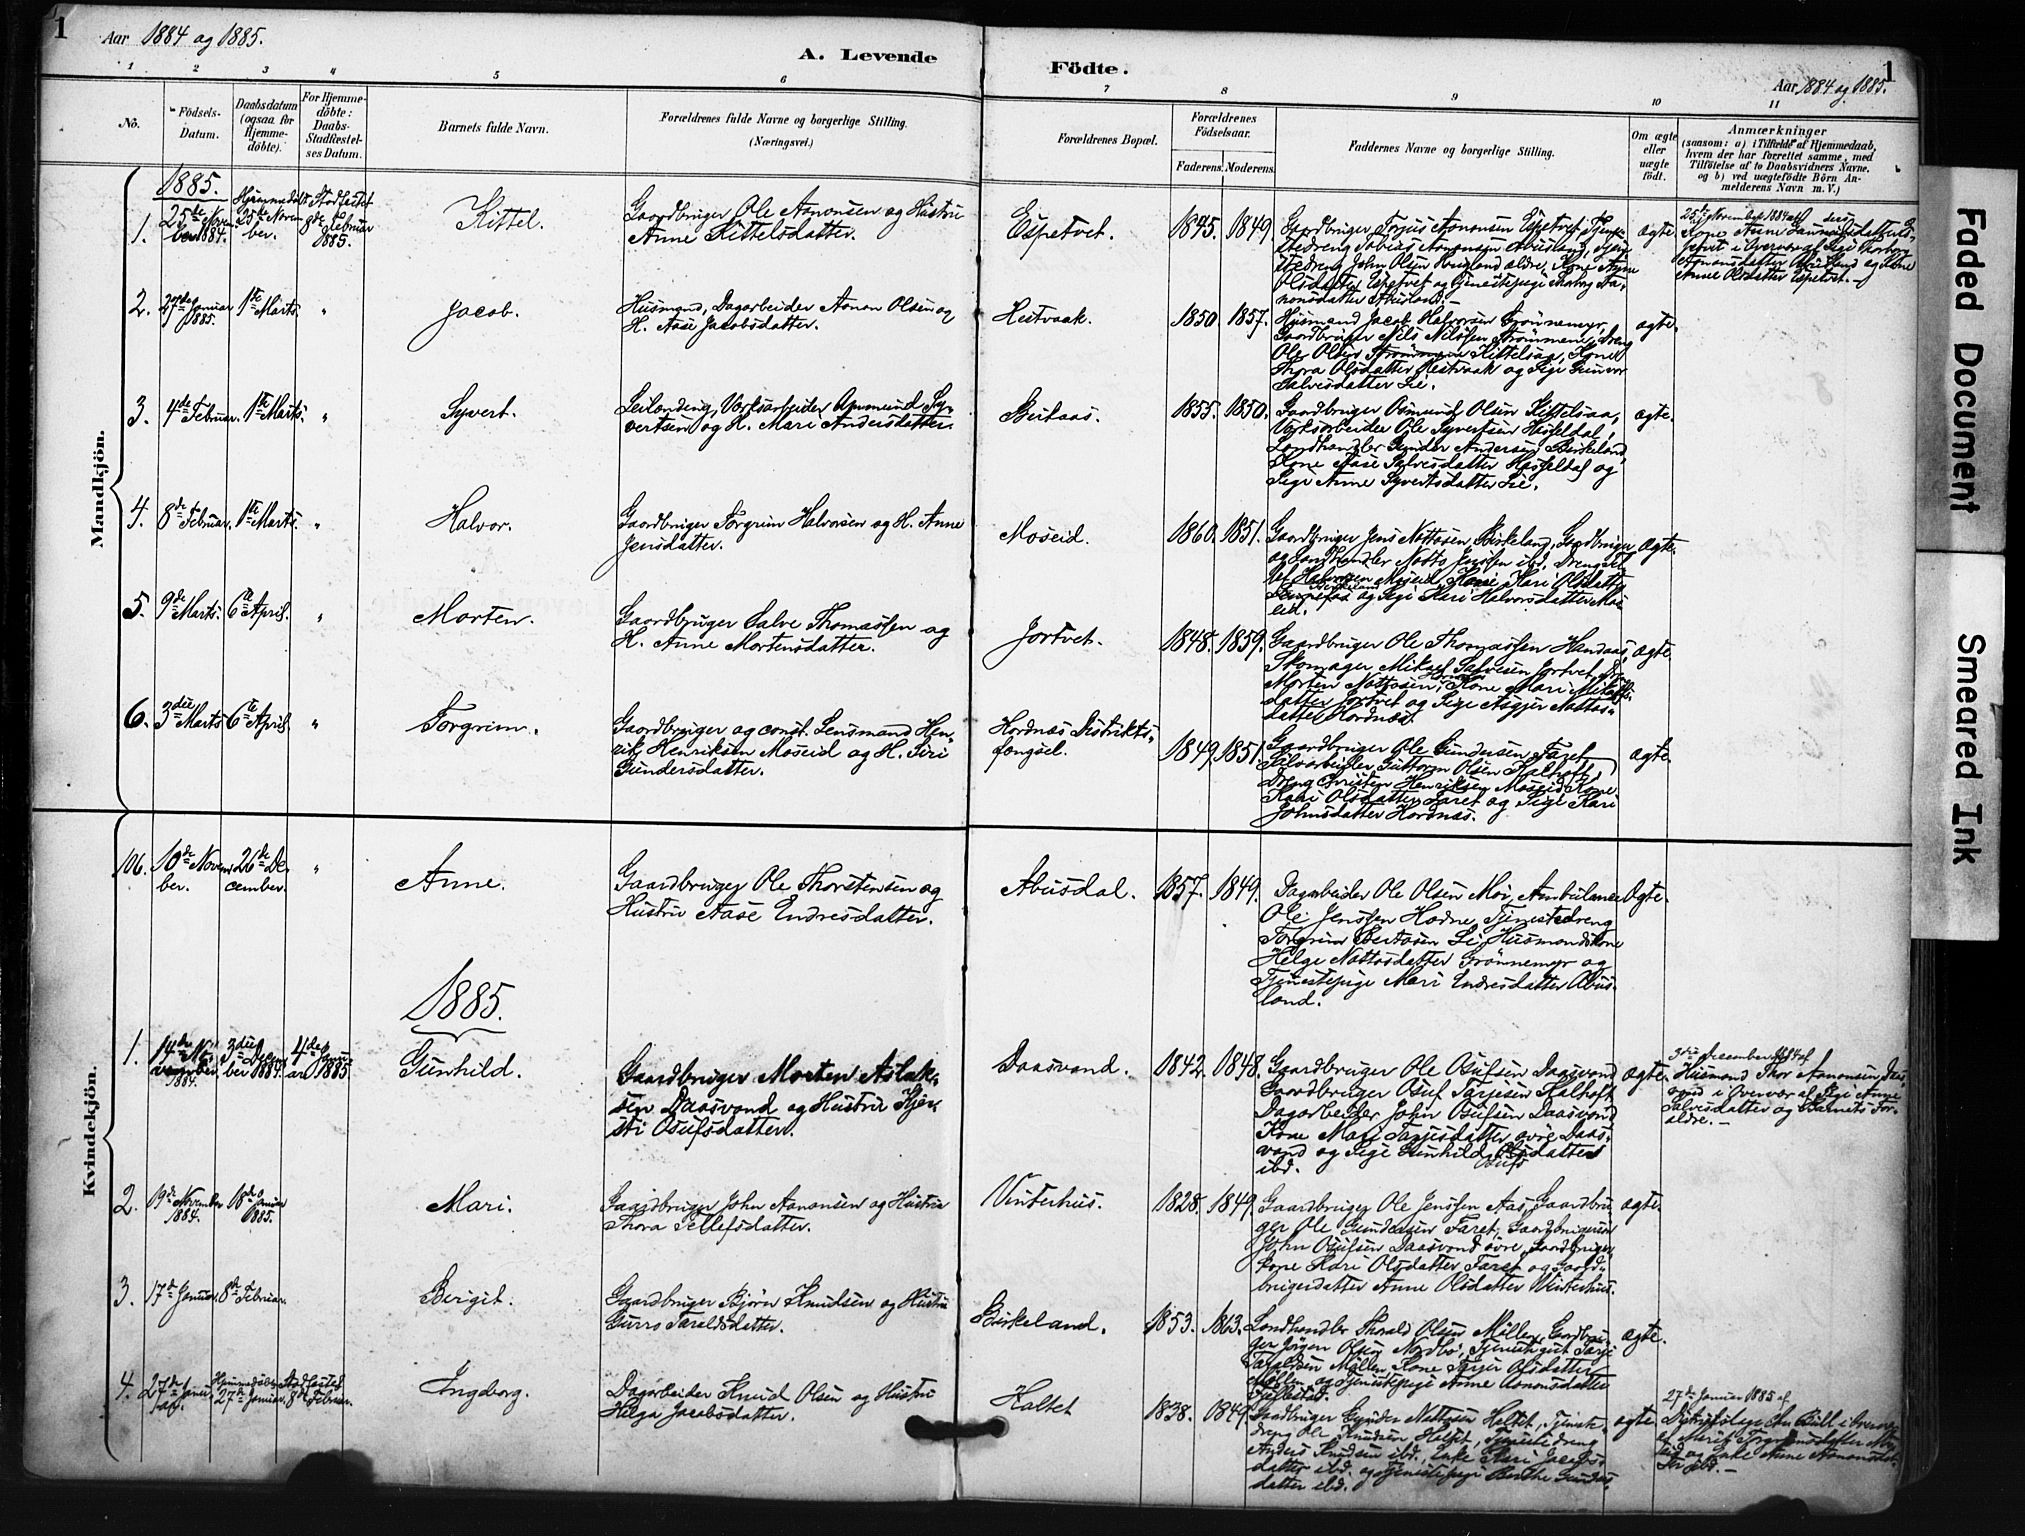 1
Aar 1884 og 1885.
A. Levende
Födte.
Aar 1884 og 1885.
1
1 2 3 4 5 6 7 8 9 10 11
No.
Födsels-
Datum.
Daabsdatum
(ogsaa for
Hjemme-
döbte).
For Hjemme-
döbte:
Daabs-
Stadfæstel-
ses Datum.
Barnets fulde Navn.
Forældrenes fulde Navne og borgerlige Stilling.
(Næringsvei.)
Forældrenes Bopæl.
Forældrenes
Födselsaar.
Faderens. Moderens.
Faddernes Navne og borgerlige Stilling.
Om ægte
eller
uægte
födt.
Anmærkninger
(saasom: a) i Tilfælde af Hjemmedaab,
hvem der har forrettet samme, med
Tilföielse af to Daabsvidners Navne.
og b) ved uegtefödte Börn An-
melderens Navn m. V.)
Mandkjön.
1885.
1.
25de Novem-
ber 1884.
Hjemmedöbt
25de Novem
ber.
Stadfæstet
8de Februar
1885.
Kittel.
Gaardbruger Ole Aanonsen og Hustru
Anne Kittelsdatter.
Espetvet.
1845. 1849.
Gaardbruger Torjus Aanonsen Espetvet, Tjene-
stedreng Tobias Aanonsen
stedreng John Olsen Kone Anne
Olsdatter Espetvet og Tjenestepige Aa-
nonsdatter
ægte
25de November 1884 af
Kone Anne
i Overvær af Pige Torborg
og Kone
Anne Olsdatter Espetvet.
2.
27de Januar
1885.
1ste Marts.
"
Jacob.
Husmand, Dagarbeider Aanon Olsen og
H. Aase Jacobsdatter.
Hestvaak.
1850. 1857.
Husmand Jacob Halvorsen Grønnemyr,
Gaardbruger Nils Nilssen Strømmene, Dreng
Ole Olsen Strømmene Kittelsaa, Kone
Thora Olsdatter Hestvaak og Pige Gunvor
Salvesdatter Lie.
ægte.
3.
4de Februar.
1ste Marts.
"
Syvert.
Leilænding, Verksarbeider Aamund Sy-
vertsen og H. Mari Andersdatter.
Bertaas.
1855. 1850.
Gaardbruger Osmund Olsen Kittelsaa,
Verksarbeider Ole Syvertsen Hasseldal,
Landhandler Gunder Andersen Birkeland,
Kone Aase Salvesdatter Hasseldal og
Pige Anne Syvertsdatter Lie.
ægte.
4.
8de Februar.
1ste Marts.
"
Halvor.
Gaardbruger Torgrim Halvorsen og H. Anne
Jensdatter.
Moseid.
1860. 1851.
Gaardbruger Jens Nottosen Birkeland, Gaardbruger
og Landhandler Notto Jenssen ibd, Dreng Tel-
lef Halvorsen Moseid, Kone Kari Olsdatter
Birkeland og Pige Kari Halvorsdatter Mos-
eid.
ægte.
5.
9de Marts.
6te April.
"
Morten.
Gaardbruger Salve Thomassen og
H. Anne Mortensdatter.
Jortvet.
1848. 1859.
Gaardbruger Ole Thomassen Handaas,
Skomager Mikael Salvesen Jortvet,
Morten Nottosen, Kone Mari Mikaels-
datter Jortvet og Pige Asgjer Nottos-
datter Hordnæs.
ægte
6.
3die Marts
6te April
"
Torgrim.
Gaardbruger og const. Lensmand Hen-
rik Henriksen Moseid og H. Siri
Gundersdatter.
Hordnæs Distrikts-
fængsel.
1849. 1851.
Gaardbruger Ole Gundersen Faret,
Selvarbeider Guttorm Olsen Kalhoft,
Dreng Christen Henriksen Moseid, Kone
Kari Olsdatter Faret og Pige Kari
Johnsdatter Hordnæs.
ægte.
Kvindekjön.
106.
10de Novem
ber.
26de De-
cember.
"
Anne.
Gaardbruger Ole Thorstensen og
Hustru Aase Endresdatter.
Abusdal.
1857. 1849.
Dagarbeider Ole Olsen Moi, Ambulance
Ole Jenssen Hodne, Tjenestedreng
Torgrim Bertosen Lie, Husmandskone
Helge Nottosdatter Grønnemyr og
Tjenestepige Mari Endresdatter Abus-
land.
Ægte.
1885.
1.
14de No-
vember
1884.
3die Decem
ber 1884.
4de Janu-
ar 1885
Gunhild.
Gaardbruger Morten Aslak-
sen Daasvand og Hustru Kjer-
sti Osufsdatter.
Daasvand.
1842. 1848.
Gaardbruger Ole Osufsen Daasvand
Gaardbruger Osuf Tarjesen Kalhoft,
Dagarbeider John Osufsen Daasvand,
Kone Mari Tarjesdatter øvre Daas-
vand og Pige Gunhild Osufsdatter
ibd.
ægte.
3die December 1884 af
Husmand Thor Aanonsen Daas-
vand i Overvær af Pige Anne
Salvesdatter og Barnets For-
ældre. -
2.
19de November
1884.
18de Januar
1885.
Mari.
Gaardbruger John Aanonsen og Hustru
Thora Tellefsdatter.
Vinterhus.
1828. 1849.
Gaardbruger Ole Jenssen Aas, Gaardbru-
ger Ole Gundersen Faret, Gaardbrugersøn
John Osufsen Daasvand øvre, Gaardbruger-
kone Kari Olsdatter Faret og Gaard-
brugerdatter Anne Olsdatter Vinterhus.
ægte.
3.
17de Januar.
8de Februar.
Bergit.
Gaardbruger Bjørn Knudsen og Hustru
Gurro Taraldsdatter.
Birkeland.
1853. 1863.
Landhandler Tharald Olsen Møllen, Gaardbru-
ger Jørgen Olsen Nordbø, Tjenestegut Tarje
Taraldsen Møllen, Kone Tarjer Olsdatter
Møllen og Tjenestepige Anne Aanonsdatter
ægte.
4.
27de Janu-
ar.
Hjemmedöbt
27de Januar.
Stadfæsted
8de Februar.
Ingborg.
Dagarbeider Knud Olsen og Hustru
Helga Jacobsdatter.
Haltet
1838. 1849.
Gaardbruger Gunder Nottosen Haltet, Tjeneste-
dreng Ole Knudsen Haltet, Tjenestedreng
Anders Knudsen ibd., Enke Kari Jacobs-
datter ibd. og Tjenestepige Berthe Gundersdatter ibd.
ægte
27de Januar 1885 af
Distriktslæge Bull i Overvær
af
Anne Aanonsdat-
ter ibd. -
Faded Document
Smeared Ink